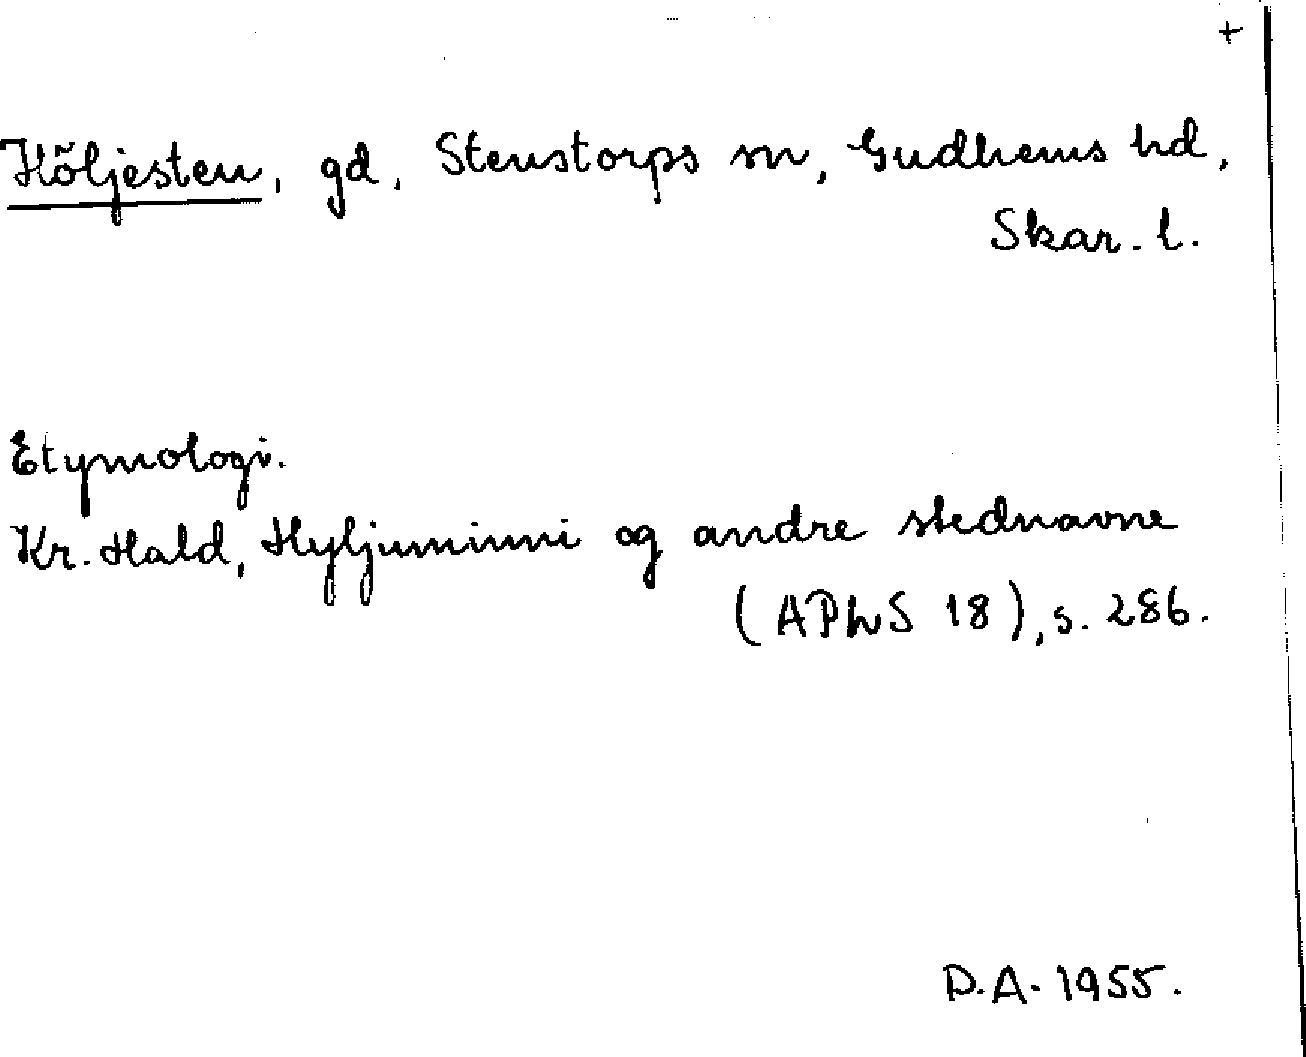 +
Höljesten, gd, Stenstorps sn, Gudhems hd,
Skar. l.
Etymologi.
Kr. Hald, Hyljuminni og andre stednavne
(APhS 18), s. 286.
D.A. 1955.